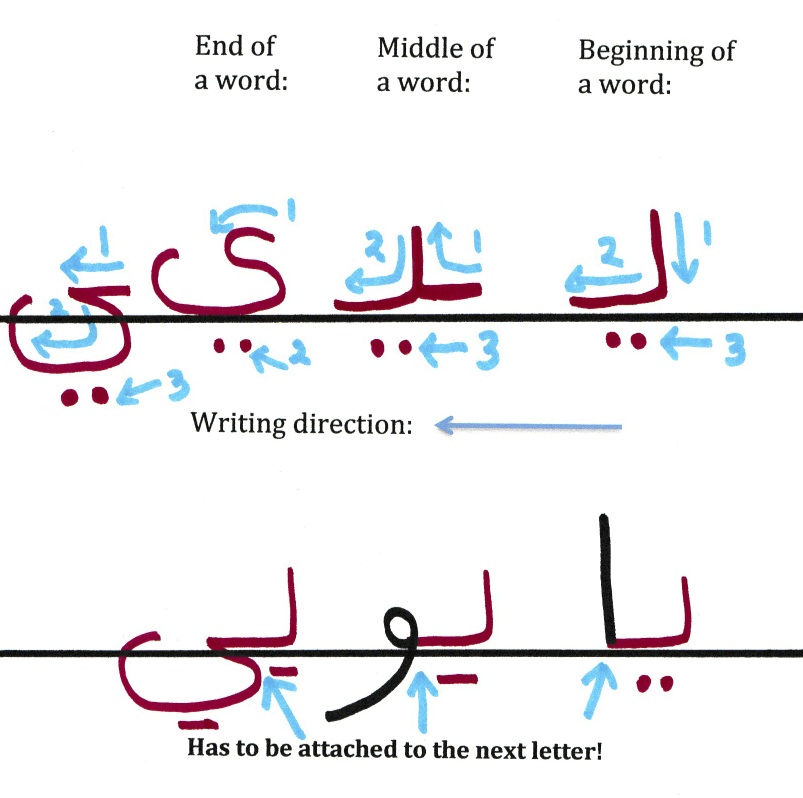 End of
a word:
Middle of
a word:
Beginning of
a word:
1 2 3 يـ
1 2 3 ـيـ
1 2 ي
1 2 3 ـي
Writing direction:
يا يو يي
Has to be attached to the next letter!